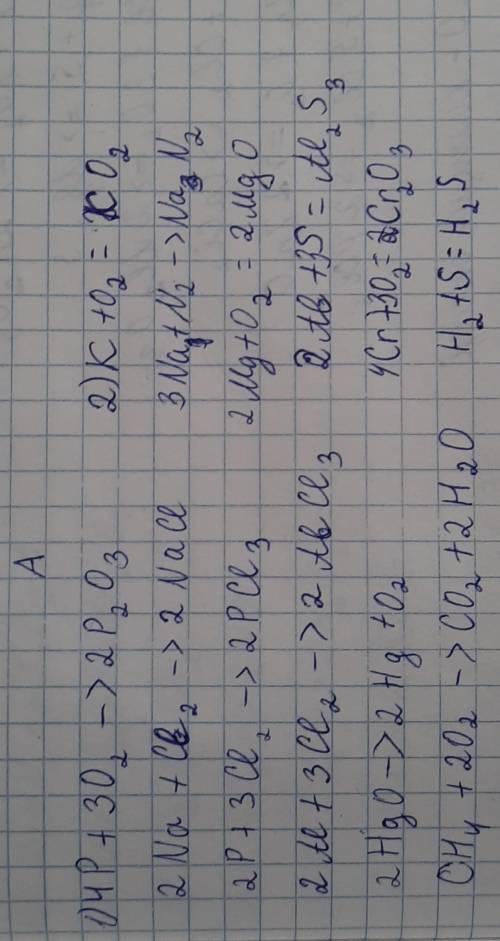 A
1) 4P + 3O₂ -> 2P₂O₃
2Na + Cl₂ -> 2NaCl
2P + 3Cl₂ -> 2PCl₃
2Al + 3Cl₂ -> 2AlCl₃
2HgO -> 2Hg + O₂
CH₄ + 2O₂ -> CO₂ + 2H₂O
2) K + O₂ = KO₂
3Na + N₂ -> Na₃N₂
2Mg + O₂ = 2MgO
2Al + 3S = Al₂S₃
4Cr + 3O₂ = 2Cr₂O₃
H₂ + S = H₂S